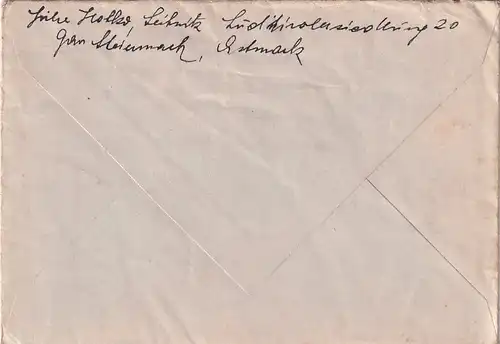 Holke, Leibnitz Südtirolersiedlung 20
Gau Steiermark, Ostmark